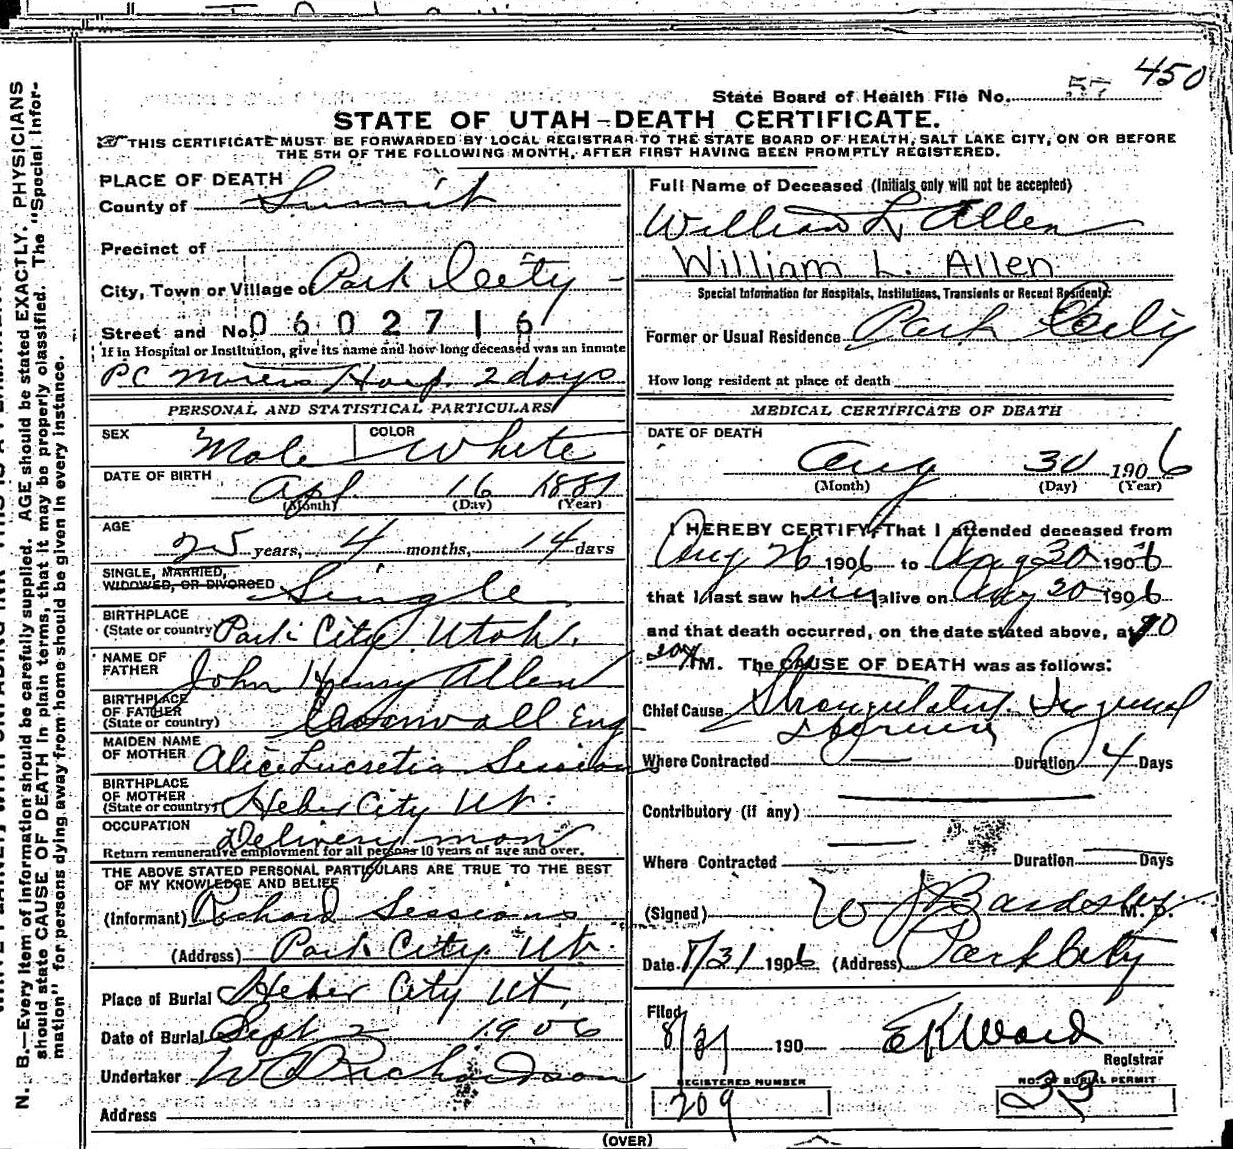 450
State Board of Health File No. 57
STATE OF UTAH-DEATH CERTIFICATE.
THIS CERTIFICATE MUST BE FORWARDED BY LOCAL REGISTRAR TO THE STATE BOARD OF HEALTH, SALT LAKE CITY, ON OR BEFORE
THE 5TH OF THE FOLLOWING MONTH, AFTER FIRST HAVING BEEN PROMPTLY REGISTERED.
N. B.—Every item of information should be carefully supplied. AGE should be stated EXACTLY. PHYSICIANS
should state CAUSE OF DEATH in plain terms, that it may be properly classified. The "Special Infor-
mation" for persons dying away from home should be given in every instance.
PLACE OF DEATH
County of Summit
Precinct of
City, Town or Village of Park City
Street and No. 0602716
If in Hospital or Institution, give its name and how long deceased was an inmate
PC Miners Hosp. 2 days
PERSONAL AND STATISTICAL PARTICULARS
SEX Male COLOR White
DATE OF BIRTH Apl 16 1881
(Month) (Day) (Year)
AGE 25 years, 4 months, 14 days
SINGLE, MARRIED,
WIDOWED, OR DIVORCED Single
BIRTHPLACE
(State or country) Park City Utah.
NAME OF
FATHER John Henry Allen
BIRTHPLACE
OF FATHER
(State or country) Cornwall Eng
MAIDEN NAME
OF MOTHER Alice Lucretia Sessions
BIRTHPLACE
OF MOTHER
(State or country) Heber City Ut.
OCCUPATION Delivery man
Return remunerative employment for all persons 10 years of age and over.
THE ABOVE STATED PERSONAL PARTICULARS ARE TRUE TO THE BEST
OF MY KNOWLEDGE AND BELIEF
(Informant) Richard Sessions
(Address) Park City Ut.
Place of Burial Heber City Ut.
Date of Burial Sept 2 1906
Undertaker Richardson
Address
Full Name of Deceased (Initials only will not be accepted)
William L Allen
William L. Allen
Special Information for Hospitals, Institutions, Transients or Recent Residents:
Former or Usual Residence Park City
How long resident at place of death
MEDICAL CERTIFICATE OF DEATH
DATE OF DEATH
Aug 30 1906
(Month) (Day) (Year)
I HEREBY CERTIFY, That I attended deceased from
Aug 26 1906 to Aug 30 1906
that I last saw him alive on Aug 30 1906
and that death occurred, on the date stated above, at
M. The CAUSE OF DEATH was as follows:
Chief Cause Strangulated Inguinal
Hernia
Where Contracted Duration 4 Days
Contributory (if any)
Where Contracted Duration Days
(Signed) W J Bardsley M. D.
Date 8/31 1906 (Address) Park City
Filed
8/31 190 E K Ward
Registrar
REGISTERED NUMBER NO. OF BURIAL PERMIT
209 33
(OVER)